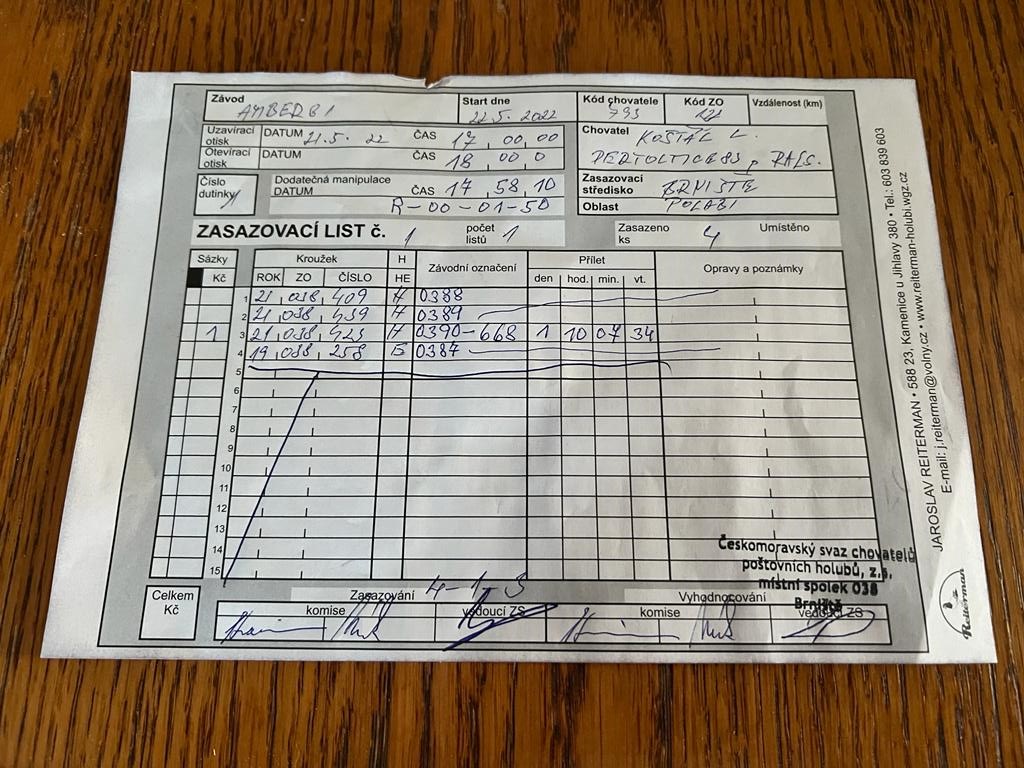 Závod AMBERB1 Start dne 22.5. 2022 Kód chovatele 793 Kód ZO Vzdálenost (km)
Uzavírací otisk DATUM 21.5. 22 ČAS 17 00 00
Otevírací otisk DATUM ČAS 18 00 0
Chovatel KOŠŤÁL L.
PERTOLTICE 83 p. RALS.
Číslo dutinky 1 Dodatečná manipulace DATUM ČAS 17 58 10
R-00-01-50
Zasazovací středisko BRNIŠTĚ
Oblast POLABÍ
ZASAZOVACÍ LIST č. 1 počet listů 1 Zasazeno ks 4 Umístěno
Sázky Kroužek H Závodní označení Přílet Opravy a poznámky
Kč ROK ZO ČÍSLO HE den hod. min. vt.
1 21 038 409 H 0388
2 21 038 439 H 0389
1 3 21 038 423 H 0390-668 1 10 07 34
4 19 038 258 0387
5
6
7
8
9
10
11
12
13
14
15
Celkem Kč Zasazování 4-1-3 Vyhodnocování
komise vedoucí ZS komise vedoucí ZS
Českomoravský svaz chovatelů
poštovních holubů, z.s.
místní spolek 038
Brniště
JAROSLAV REITERMAN • 588 23, Kamenice u Jihlavy 380 • Tel.: 603 839 603
E-mail: j.reiterman@volny.cz • www.reiterman-holubi.wgz.cz
Reiterman